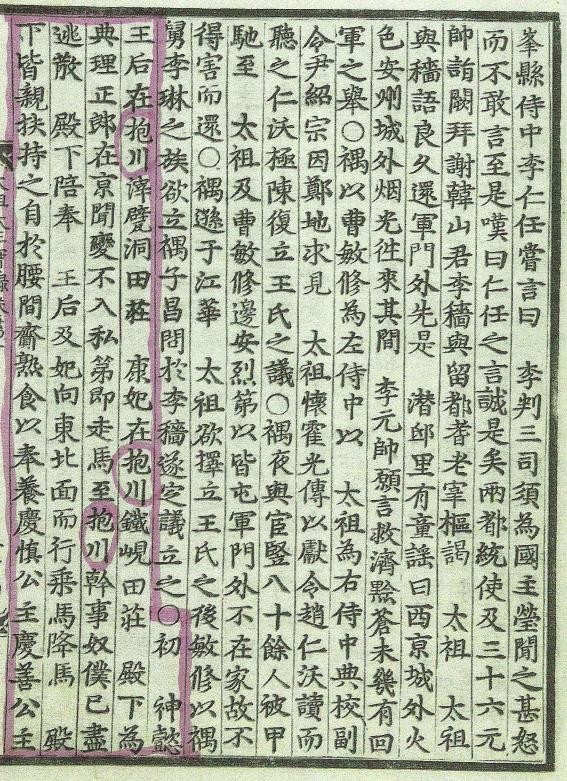 峯縣侍中李仁任嘗言曰　李判三司須為國主瑩聞之甚怒
而不敢言至是嘆曰仁任之言誠是矣兩都統使及三十六元
帥詣闕拜謝韓山君李穡與留都耆老宰樞謁　太祖　太祖
與穡語良久還軍門外先是　潛邸里有童謠曰西京城外火
色安州城外烟光徃來其間　李元帥願言救濟黔蒼未幾有回
軍之舉○禑以曹敏修為左侍中以　太祖為右侍中典校副
令尹紹宗因鄭地求見　太祖懷霍光傳以獻令趙仁沃讀而
聽之仁沃極陳復立王氏之議○禑夜與宦竪八十餘人被甲
馳至　太祖及曹敏修邊安烈第以皆屯軍門外不在家故不
得害而還○禑遜于江華　太祖欲擇立王氏之後敏修以禑
舅李琳之族欲立禑子昌問於李穡遂定議立之○初　神懿
王后在抱川滓甓洞田莊　康妃在抱川鐵峴田莊　殿下為
典理正郎在京聞變不入私第即走馬至抱川幹事奴僕已盡
逃散　殿下陪奉　王后及妃向東北面而行乘馬降馬　殿
下皆親扶持之自於腰間齎熟食以奉養慶慎公主慶善公主